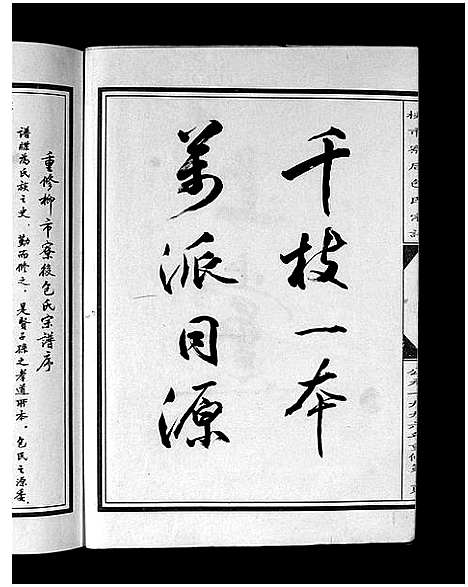 千枝一本
萬派同源
重修柳市寮後包氏宗譜序
譜牒為氏族之史，勤而修之，是賢子孫之孝道所本，包氏之源委，